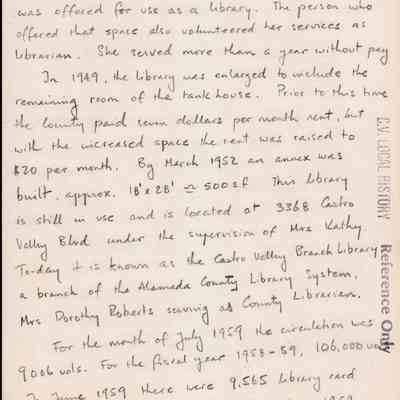 was offered for use as a library. The person who
offered that space also volunteered her services as
librarian. She served more than a year without pay
In 1949, the library was enlarged to include the
remaining room of the tankhouse. Prior to this time
the County paid seven dollars per month rent, but
with the increased space the rent was raised to
$20 per month. By March 1952 an annex was
built, approx. 18' x 28' ≃ 500 sf This library
is still in use and is located at 3368 Castro
Valley Blvd under the supervision of Mrs Kathy.
To-day it is known as the Castro Valley Branch Library
a branch of the Alameda County Library System,
Mrs Dorothy Roberts serving as County Librarian.
For the month of July 1959 the circulation was
9006 vols. For the fiscal year 1958-59, 106,000 vols
In June 1959 there were 9,565 library card
1959
C.V. LOCAL HISTORY
Reference Only